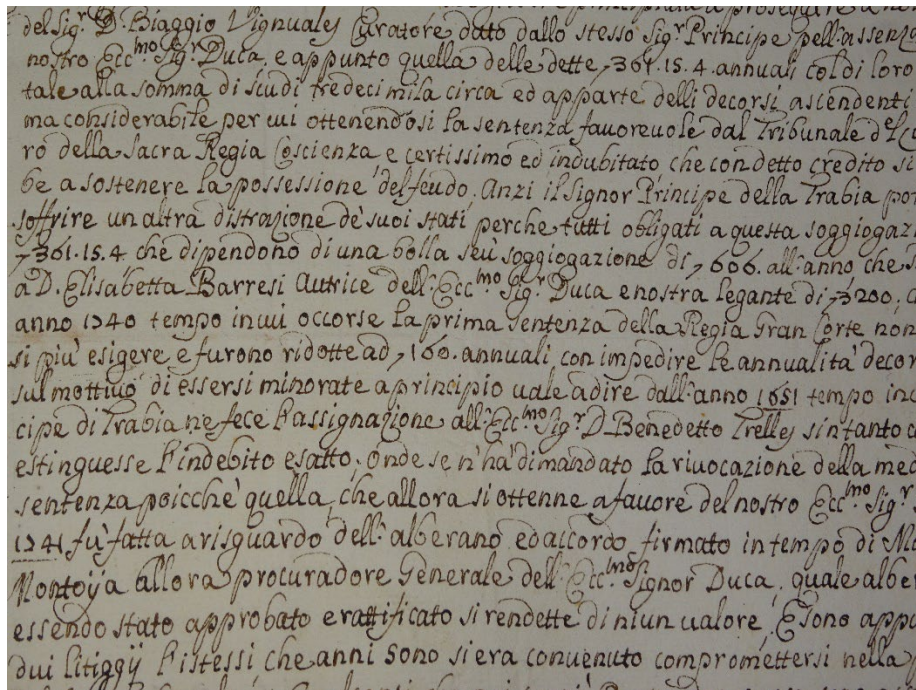 del Sig.r D. Biaggio Vignuales Curatore dato dallo stesso Sig.r Principe pell'assenza
nostro Ecc.mo Sig.r Duca, e appunto quella delle dette 361.15.4. annuali col di loro
tale alla somma di scudi tredeci mila circa ed apparte delli decorsi ascendenti
ma considerabile per cui ottenendosi la sentenza favorevole dal Tribunale del C
ro della Sacra Regia Coscienza e certissimo ed indubitato che con detto credito si
be a sostenere la possessione del feudo. Anzi il Signor Principe della Trabia po
soffrire un altra distrazione de suoi stati perche tutti obligati a questa soggiogazi
361.15.4 che dipendono di una bolla seù soggiogazione di 606. all'anno che
a D. Elisabetta Barresi Autrice dell'Ecc.mo Sig.r Duca e nostra legante di 3200.
anno 1740 tempo in cui occorse la prima sentenza della Regia Gran Corte non
si più esigere e furono ridotte ad 160. annuali con impedire le annualità decor
sul mottivo di essersi minorate a principio vale a dire dall'anno 1651 tempo in
cipe di Trabia ne fece l'assignazione all'Ecc.mo Sig.r D. Benedetto Trelles sin tanto
estinguesse l'indebito esatto. Onde se n'ha dimandato la rivocazione della med
sentenza poicchè quella, che allora si ottenne a favore del nostro Ecc.mo Sig.r
1741 fù fatta a risguardo dell'alberano ed accordo firmato in tempo di
Montoÿa allora procuradore Generale dell'Ecc.mo Signor Duca, quale albe
essendo stato approbato e rattificato si rendette di niun valore, E sono app
dui litiggÿ l'istessi che anni sono si era convenuto compromettersi nella